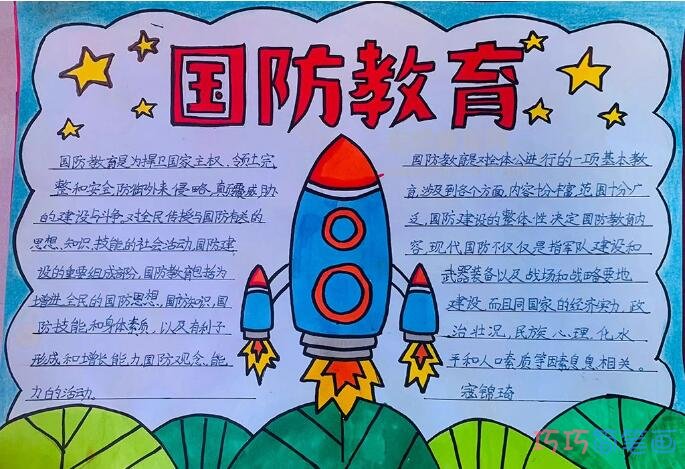 国防教育
国防教育是为捍卫国家主权、领土完
整和安全防御外来侵略、颠覆威胁
的建设与斗争,对全民传授与国防有关的
思想、知识、技能的社会活动,国防建
设的重要组成部分,国防教育包括为
增进全民的国防思想、国防知识、国
防技能和身体素质,以及有利于
形成和增长能力国防观念、能
力的活动。
国防教育是对全体公进行的一项基本教
育,涉及到各个方面,内容十分丰富,范围十分广
泛,国防建设的整体性决定国防教育内
容,现代国防不仅仅是指军队建设和
武器装备以及战场和战略要地
建设,而且同国家的经济实力,政
治状况,民族心理,化水
平和人口素质等因素息息相关。
寇锦琦
巧巧简笔画